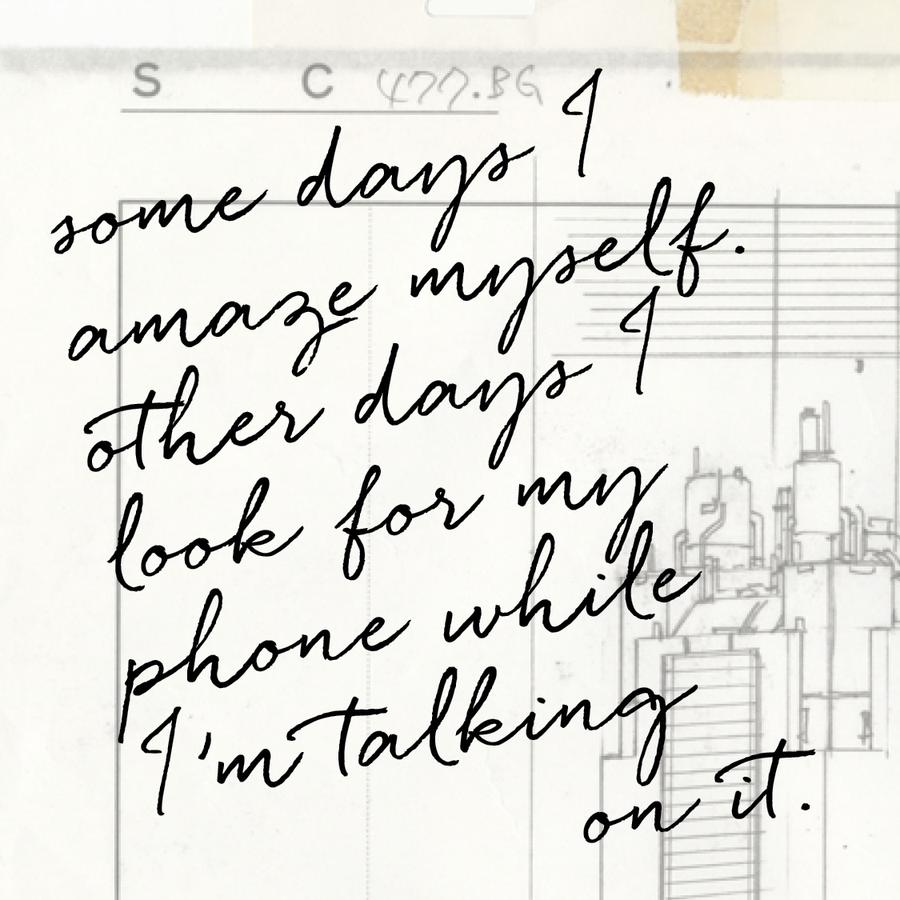 S C 477.BG
some days I
amaze myself.
other days I
look for my
phone while
I'm talking
on it.